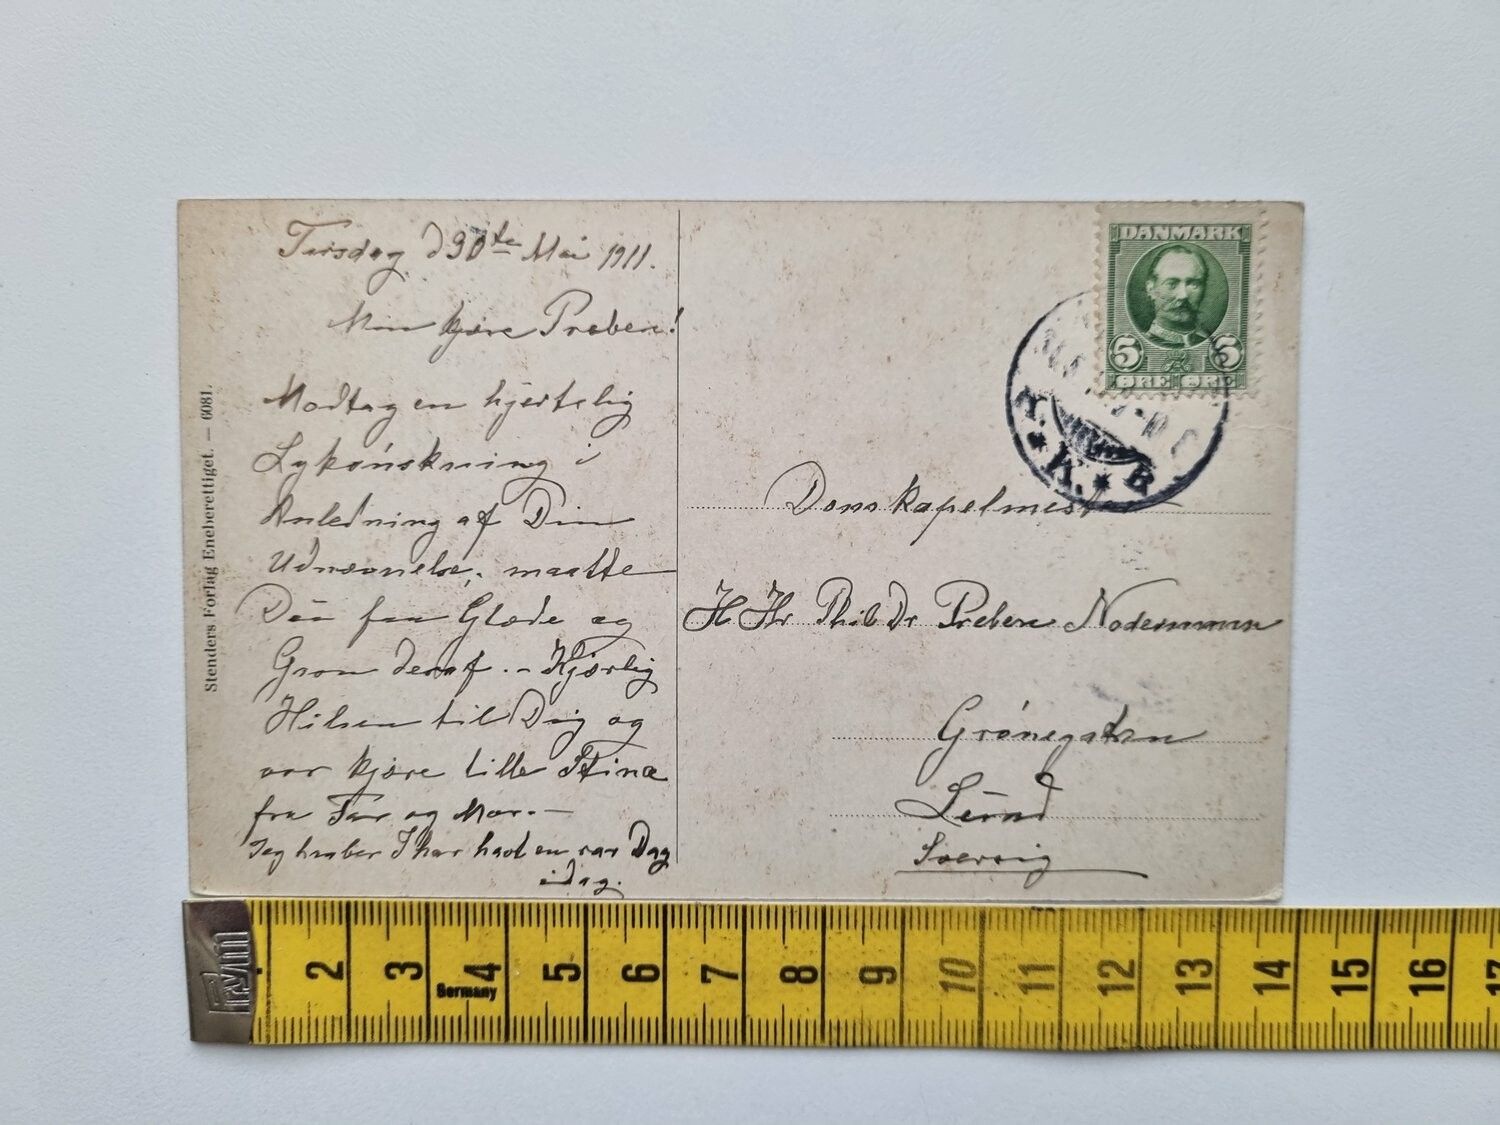 Tirsdag d 30te Mai 1911.
Min kjære Preben!
Modtag en hjertelig
Lykønskning i
Anledning af Din
Udnævnelse, maatte
Du faa Glæde og
Gavn deraf. – Kjærlig
Hilsen til Dig og
vor kjære lille Stina
fra Far og Mor. –
Jeg haaber I har havt en rar Dag
idag.
Stenders Forlag Eneberettiget. – 6081.
DANMARK
5 5
ØRE ØRE
K. * B
Domkapelmester
H Hr Phil Dr Preben Nodermann
Grönegatan
Lund
Sverrig
Prym
2 3 4 5 6 7 8 9 10 11 12 13 14 15 16 17
Germany